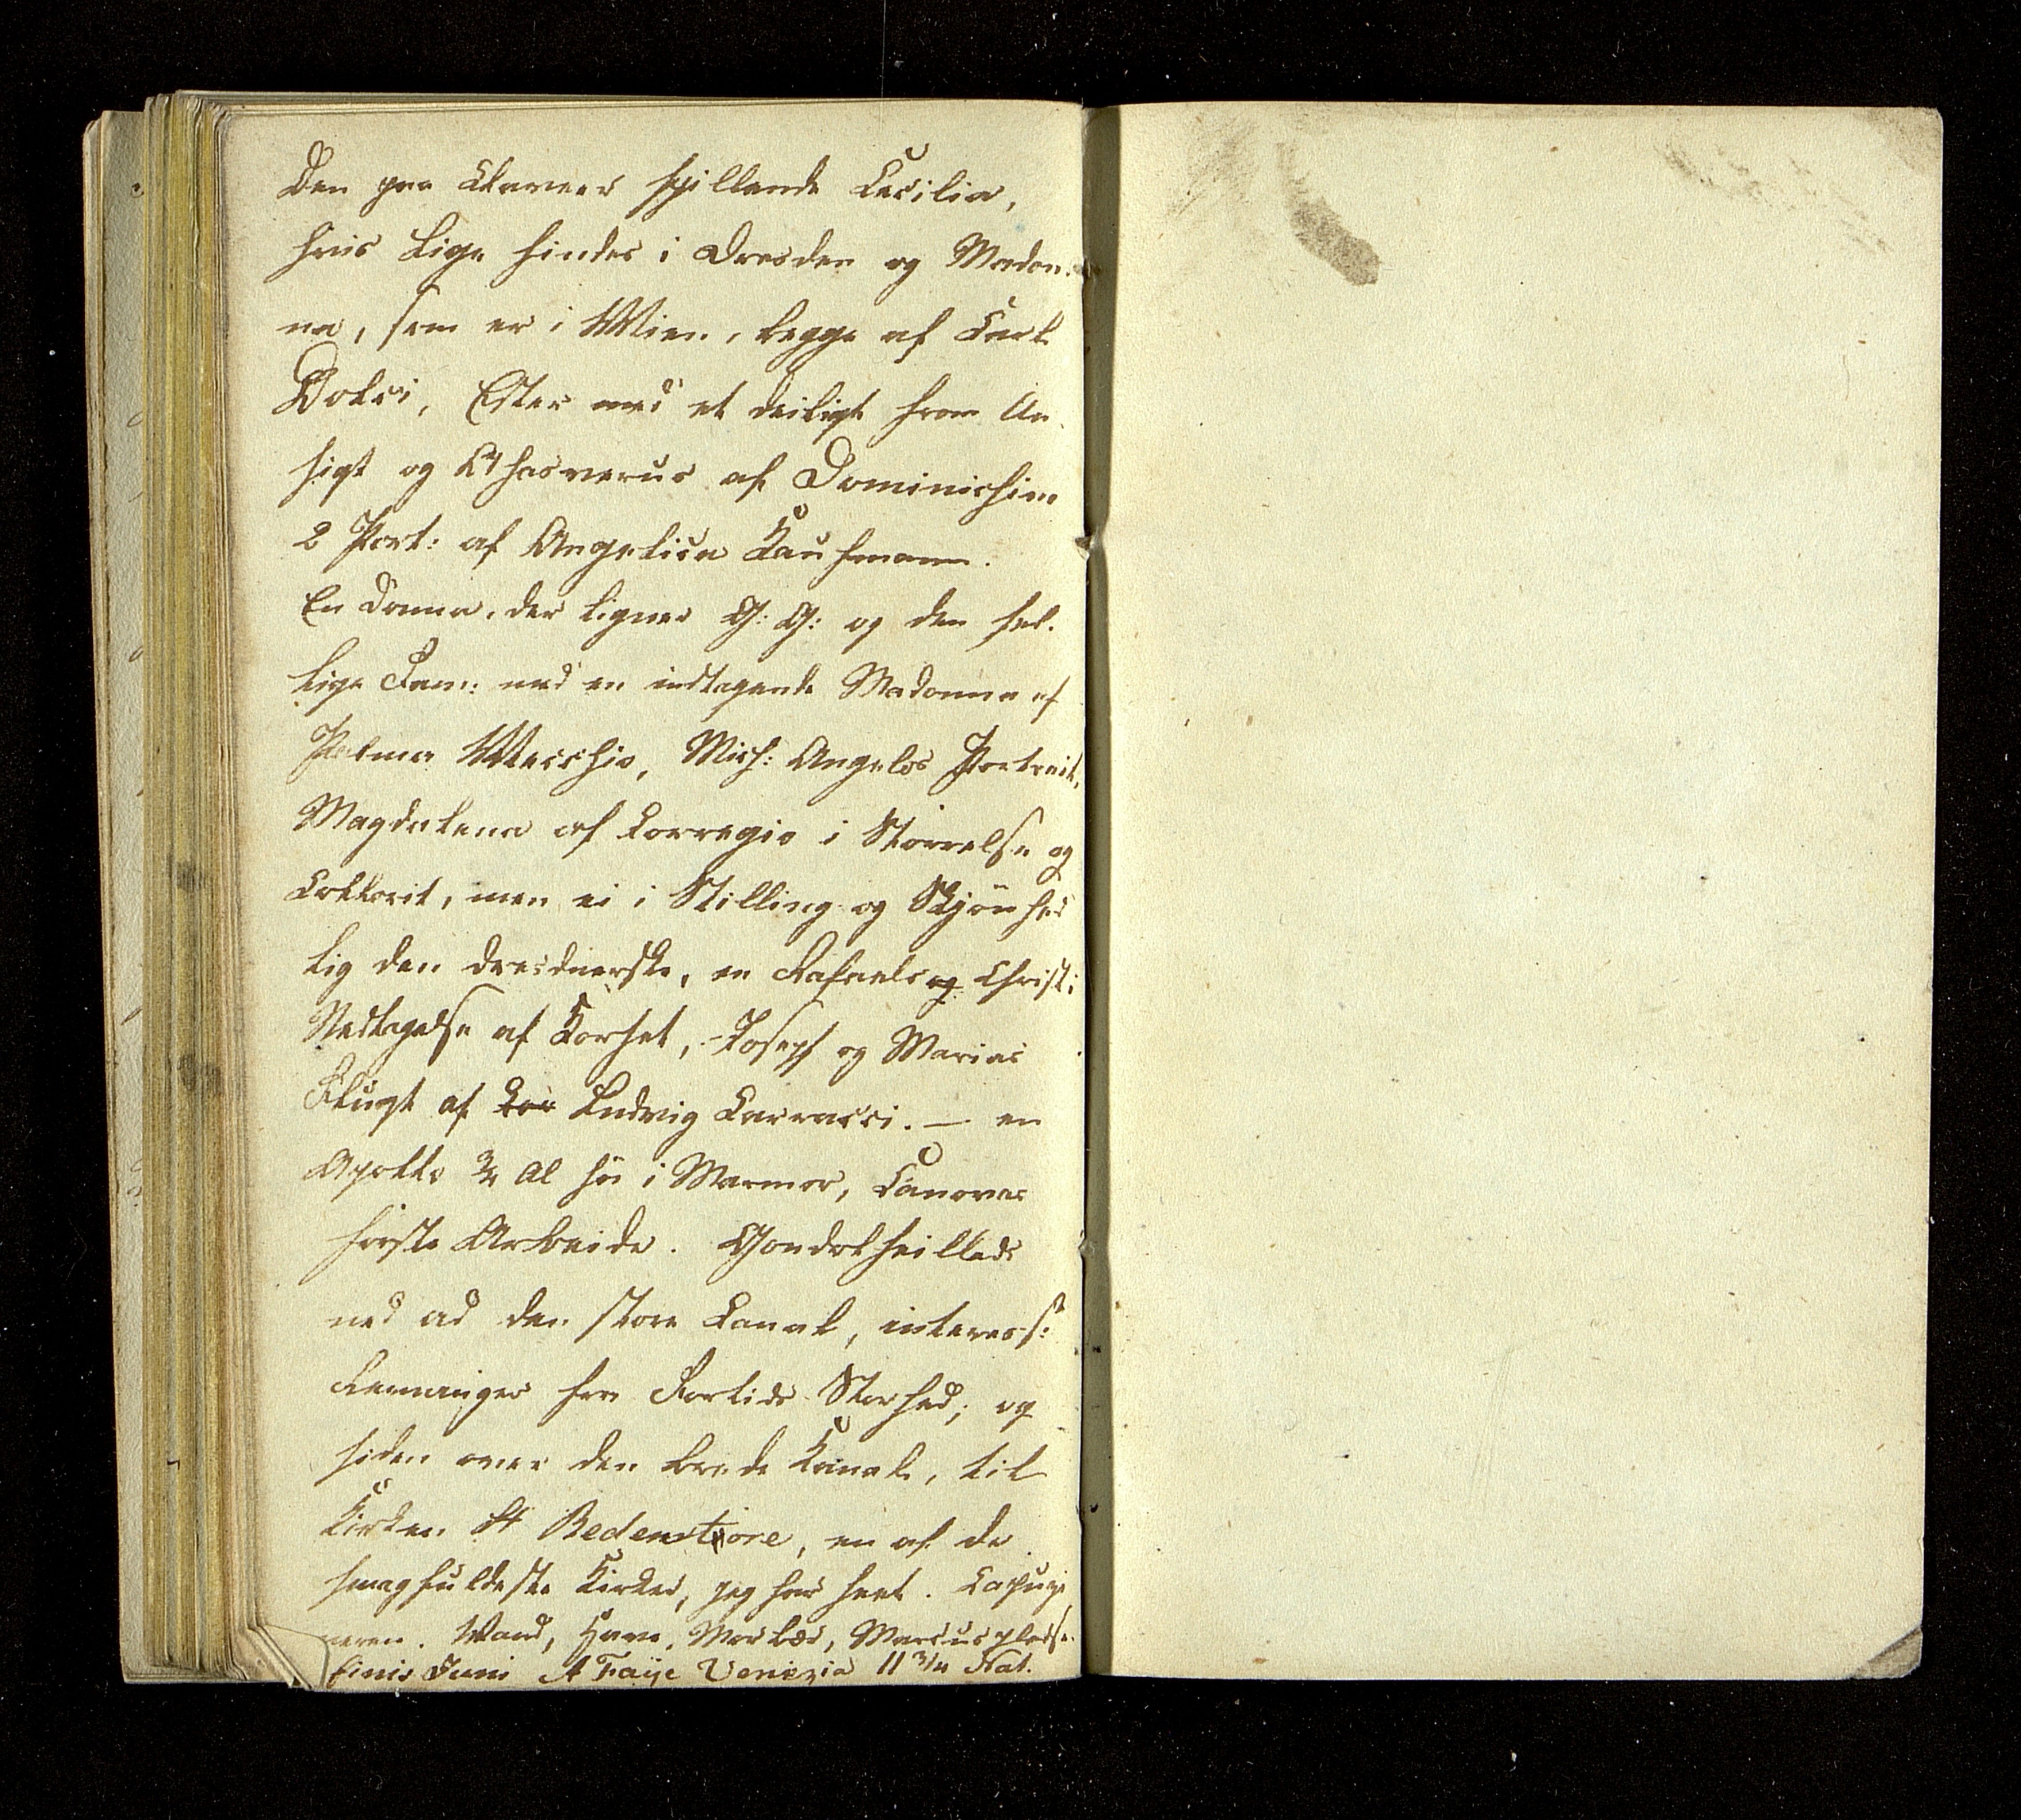 den paa Claveer spillende Cecilia,
hvis Lige findes i Dresden og Madon-
na, som er i Wien, begge af Carl
Dolci, Ester med et deiligt from An-
sigt og Ahasverus af Dominichino
2 Port: af Angelica Kaufmann.
En Donna, der ligner G: G: og den hel-
lige Fam: med en indtagende Madonna af
Palma Vecchio, Mich: Angelos Portrait,
Magdalena af Corregio i Størrelse og
Collorit, men ei i Stilling og Skjønhed
lig den dresdnerske, en Rafaels og Christi
Nedtagelse af Korset, – Joseph og Marias
Flugt af Cor Ludvig Carracci. – en
Apollo 3/4 Al høi i Marmor, Canovas
første Arbeide. Gondolseillads
ned ad den store Canal, interess:
Levninger fra Fortids Storhed; og
siden over den brede Kanal, til
Kirken St Redemtore, en af de
smagfuldeste Kirker, jeg har seet. Capuzi
neren. Vand, Have, Morbær, Marcuspladse.
Finis Juni A Faÿe Venezia 11 3/4 Nat.